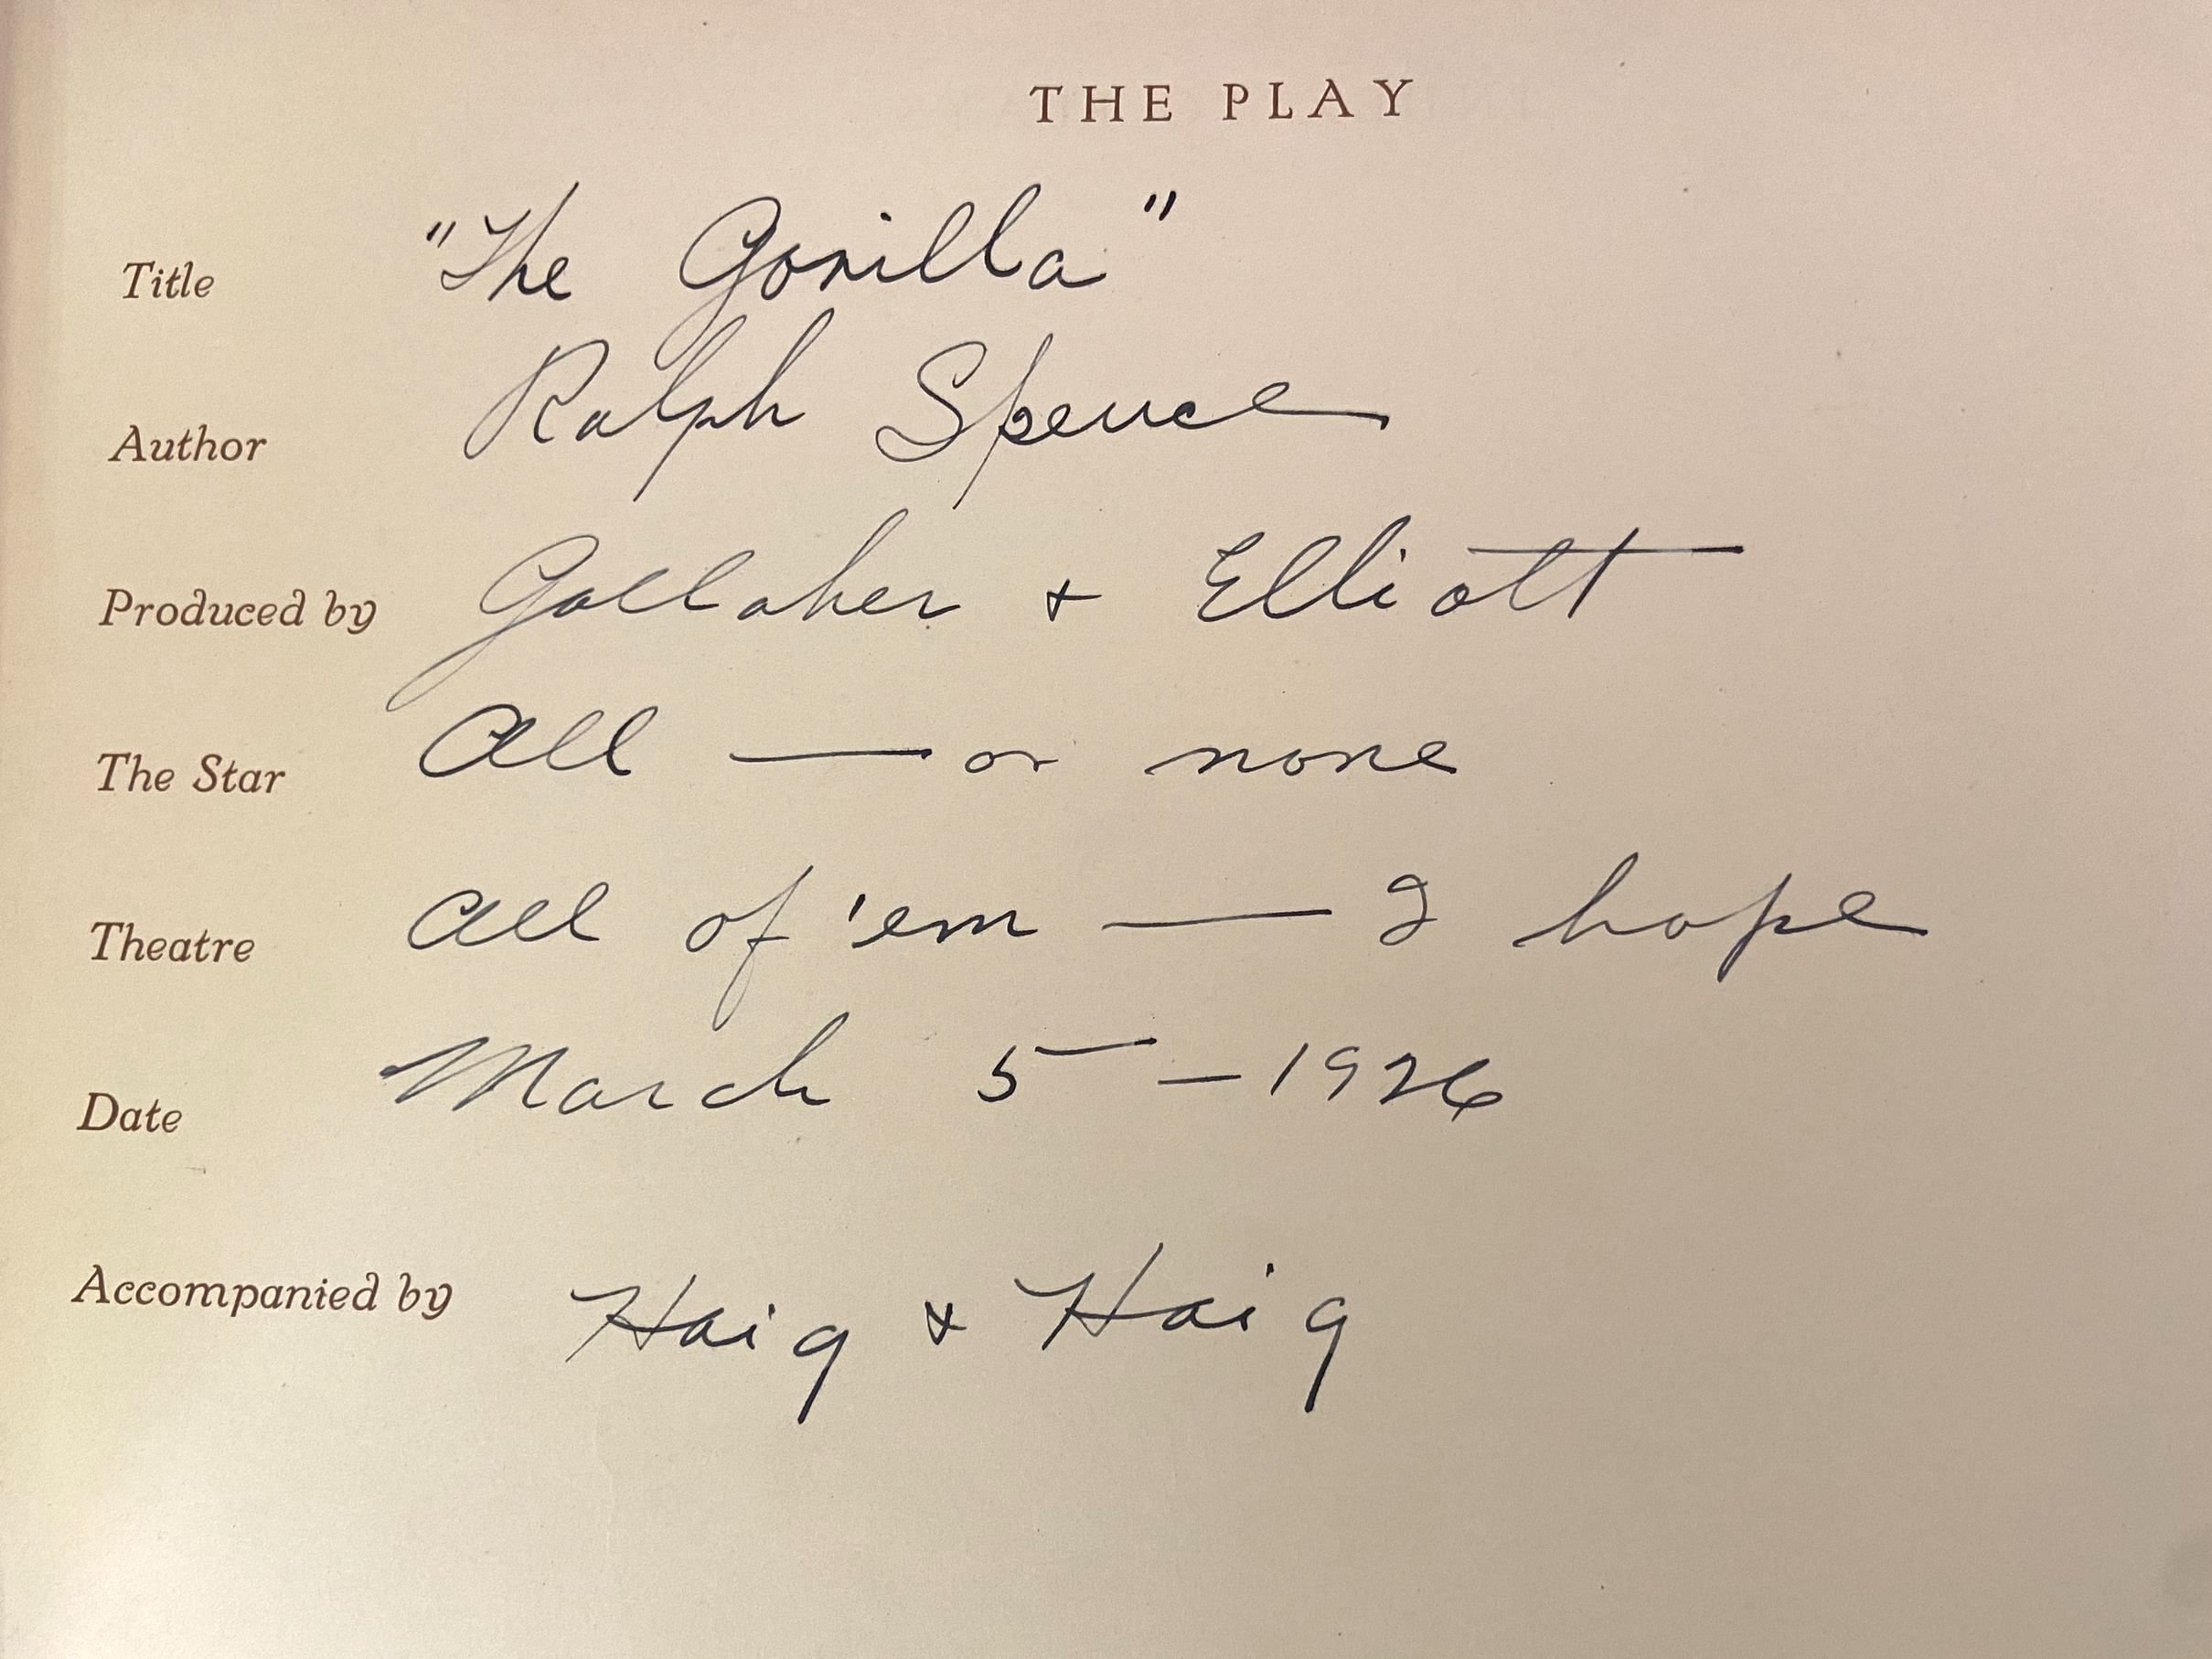 THE PLAY
Title "The Gorilla"
Author Ralph Spence
Produced by Gallaher + Elliott
The Star All — or none
Theatre All of 'em — I hope
Date March 5 — 1926
Accompanied by Haig + Haig